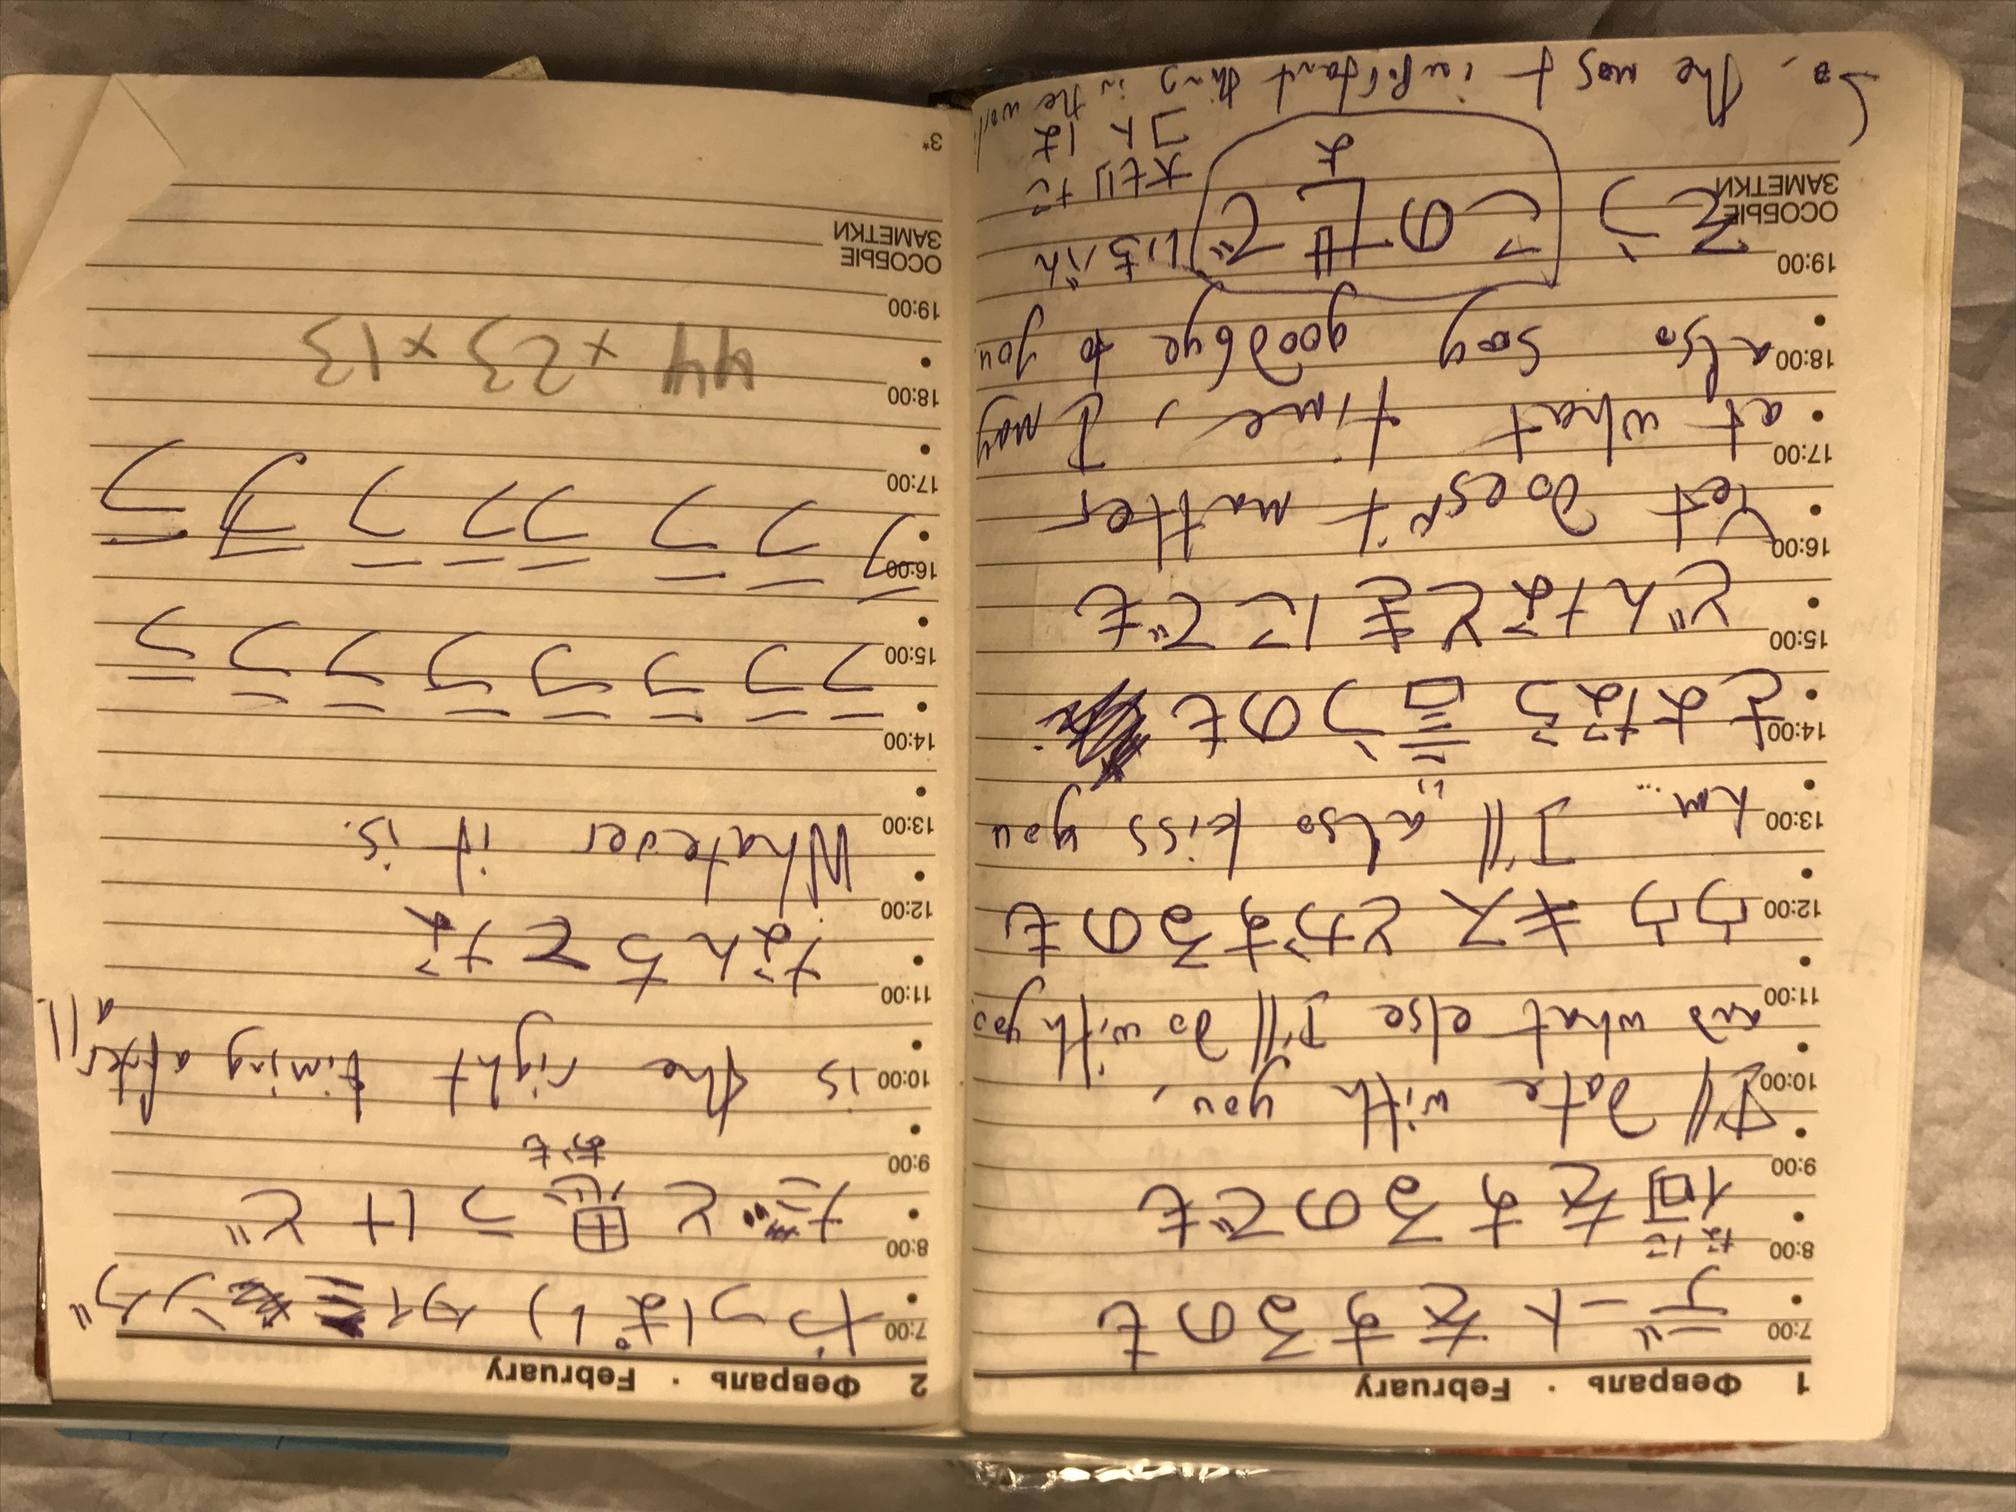 1 Февраль · February
7:00 デートをするのも
なに
8:00 何をするのでも
9:00 I'll date with you,
10:00 and what else I'll do with you
11:00 ウウ キスとかするのも
12:00 hm... I'll also kiss you
13:00 さよなら言うのも
14:00 どんなときにでも
15:00 Yet doesn't matter
16:00 at what time, I may
17:00 also say goodbye to you
18:00
19:00 そう この世で いちばん
よ
ОСОБЫЕ
ЗАМЕТКИ
大切な
コトは
So, the most important thing in the worl
2 Февраль · February
7:00 やっぱりタイミング
8:00 だと思うけど
おも
9:00 is the right timing after all.
10:00
11:00 なんちてな
12:00 Whatever it is.
13:00
14:00 ララララララララ
15:00
16:00 ララララララララ
17:00
18:00 44 + 23 × 13
19:00
ОСОБЫЕ
ЗАМЕТКИ
3*